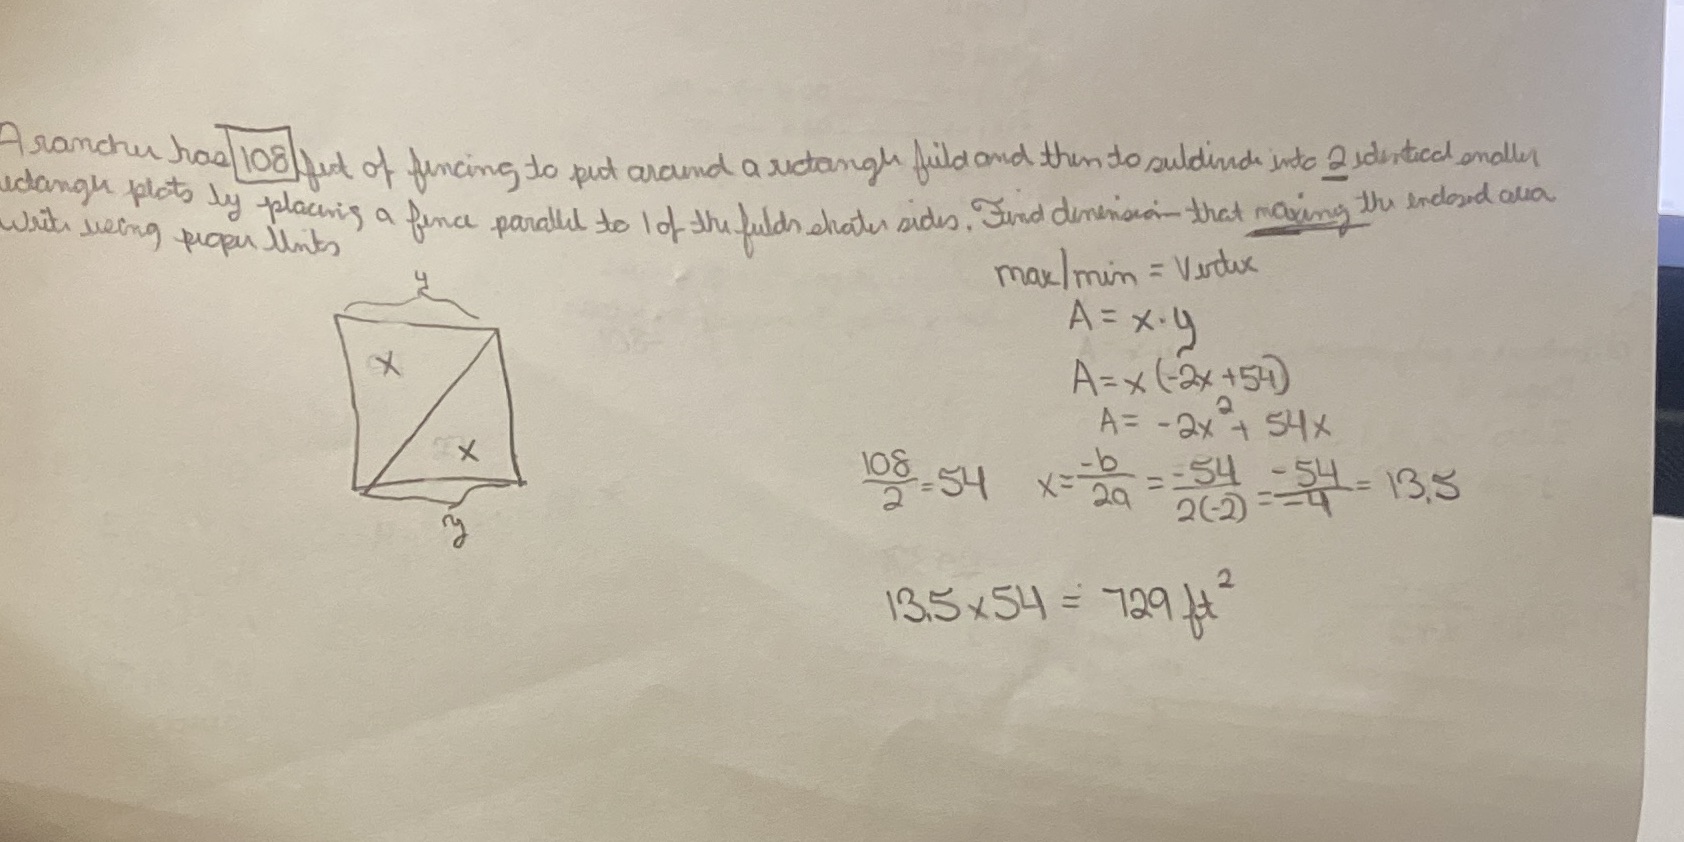 A rancher has 108 feet of fencing to put around a rectangle field and then to subdivide into 2 identical smaller
rectangle plots by placing a fence parallel to 1 of the fields shorter sides. Find dimension that maxing the enclosed area
Write using proper units
max/min = Vertex
y
A = x·y
x
A = x(-2x+54)
A = -2x²+ 54x
x
108/2 = 54 x = -b/2a = -54/2(-2) = -54/-4 = 13.5
y
13.5 x 54 = 729 ft²